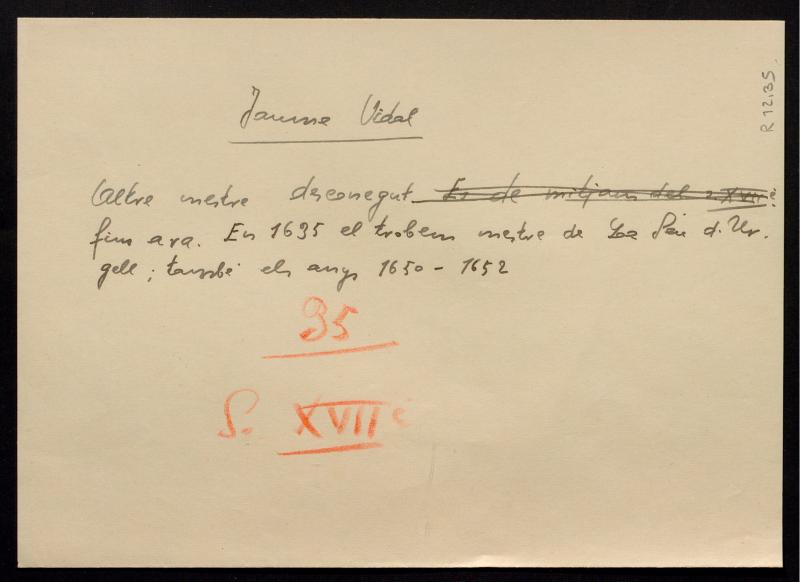 R 12.135
Jaume Vidal
Altre mestre desconegut. Es de mitjans del s. XVIIè
fins ara. En 1635 el trobem mestre de La Seu d'Ur-
gell; també els anys 1650 - 1652
35
S. XVII è